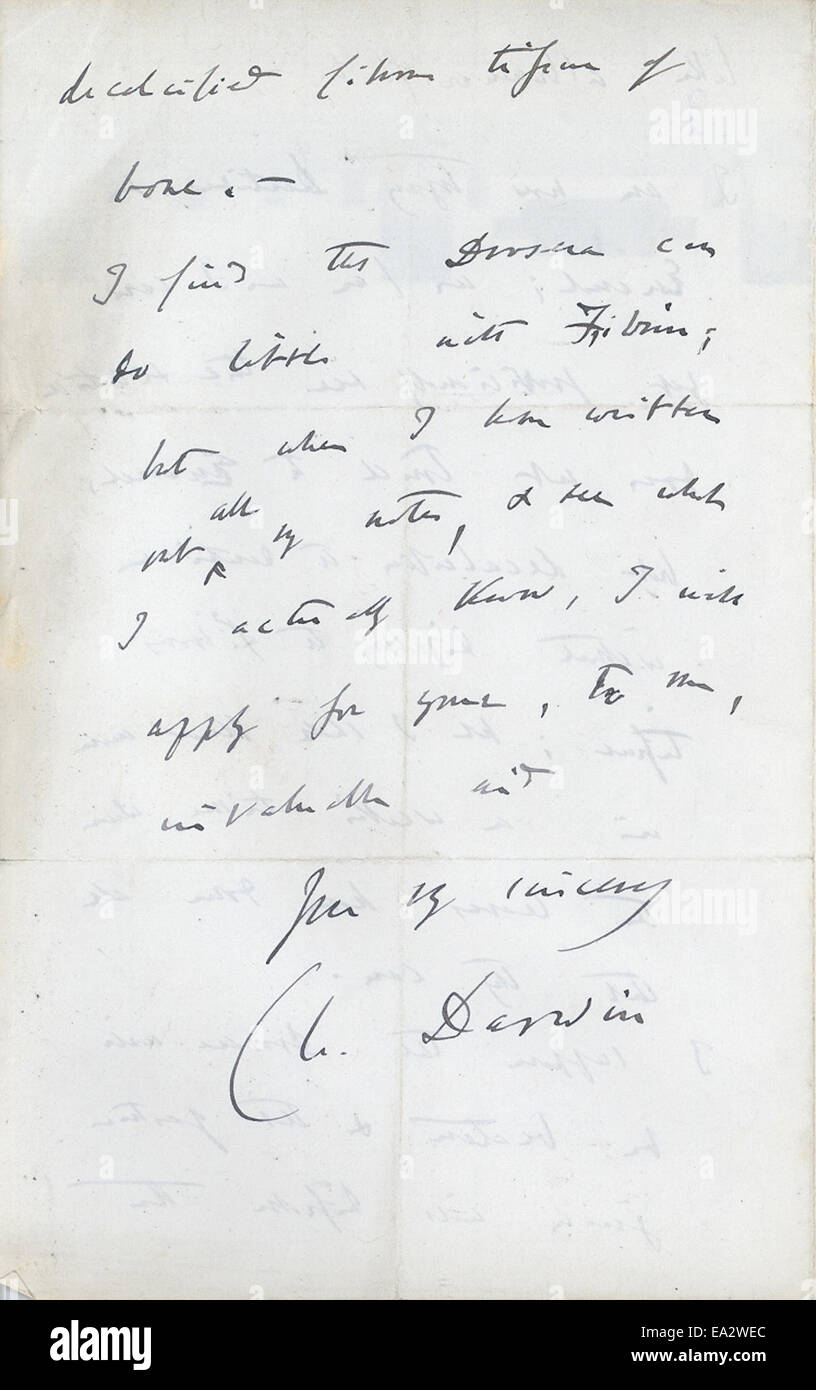 decalcified fibrous tissue of
bone. —
I find the Drosera can
do little with Fibrin;
but when I have written
out all my notes, & see what
I actually know, I will
apply for your, to me,
invaluable aid
Yours very sincerely
Ch. Darwin
alamy
alamy
alamy
alamy
alamy
Image ID: EA2WEC
www.alamy.com